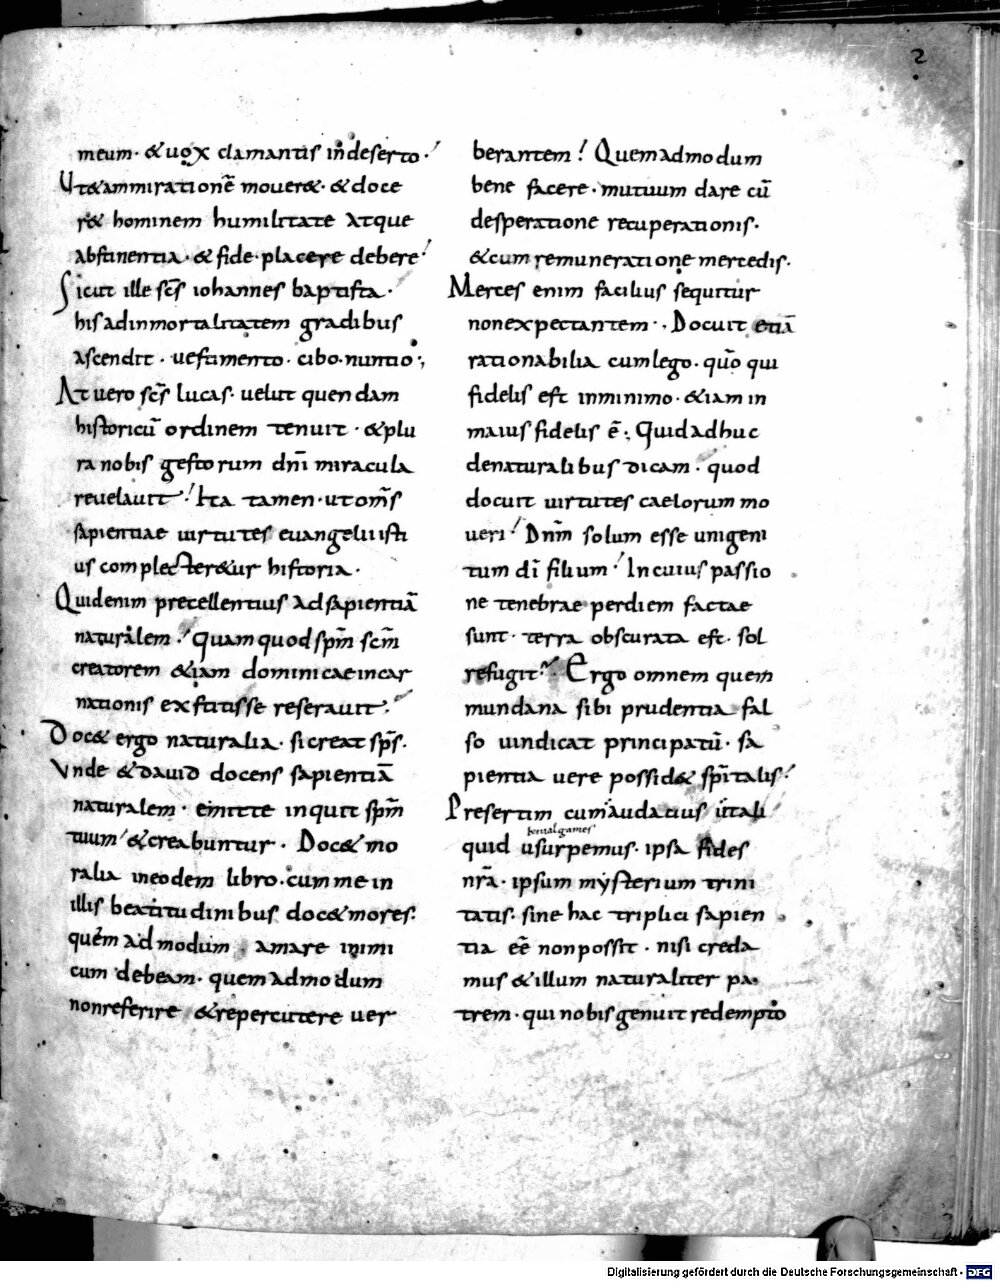 2
meum· &uox clamantis indeserto·
Ut&ammirationē mouer&· &doce
r& hominem humilitate atque
abstinentia· & fide·placere debere
Sicut ille scs̄ iohannes baptista·
his adinmortalitatem gradibus
ascendit· uestimento· cibo·nuntio·,
At uero scs̄ lucas· uelut quendam
historicū ordinem tenuit· &plu
ra nobis gestorum dnī miracula
reuelauit! Ita tamen·ut omīs
sapientiae uirtutes euangelii isti
us complecter&ur historia·
Quidenim precellentius adsapientiā
naturalem· quam quod spm̄ scm̄
creatorem &iam dominicae incar
nationis exstitisse reserauit·
Doc& ergo naturalia· si creat sps̄·
Vnde &dauid docens sapientiā
naturalem· emitte inquit spm̄
tuum &creabuntur· Doc& mo
ralia ineodem libro·cum me in
illis beatitudinibus doc&mores·
quem admodum amare inimi
cum debeam· quem admodum
nonreferire &repercutere uer
berantem! Quemadmodum
bene facere·mutuum dare cū
desperatione recuperationis·
&cum remuneratione mercedis·
Merces enim facilius sequitur
nonexpectantem·, Docuit etiā
rationabilia cumlego· quō qui
fidelis est inminimo· &iam in
maius fidelis ē·, Quid adhuc
denaturalibus dicam· quod
docuit uirtutes caelorum mo
ueri! Dnm̄ solum esse unigeni
tum dī filium! In cuius passio
ne tenebrae perdiem factae
sunt· terra obscurata est· sol
refugit· Ergo omnem quem
mundana sibi prudentia fal
so uindicat principatū· sa
pientia uere possid& spīitalis!
Presertim cum audacius ut ali
quid usurpemus· ipsa fides
nrā· ipsum mysterium trini
tatis· sine hac triplici sapien
tia eē non possit· nisi creda
mus &illum naturaliter pa·
trem· qui nobis genuit redemptō